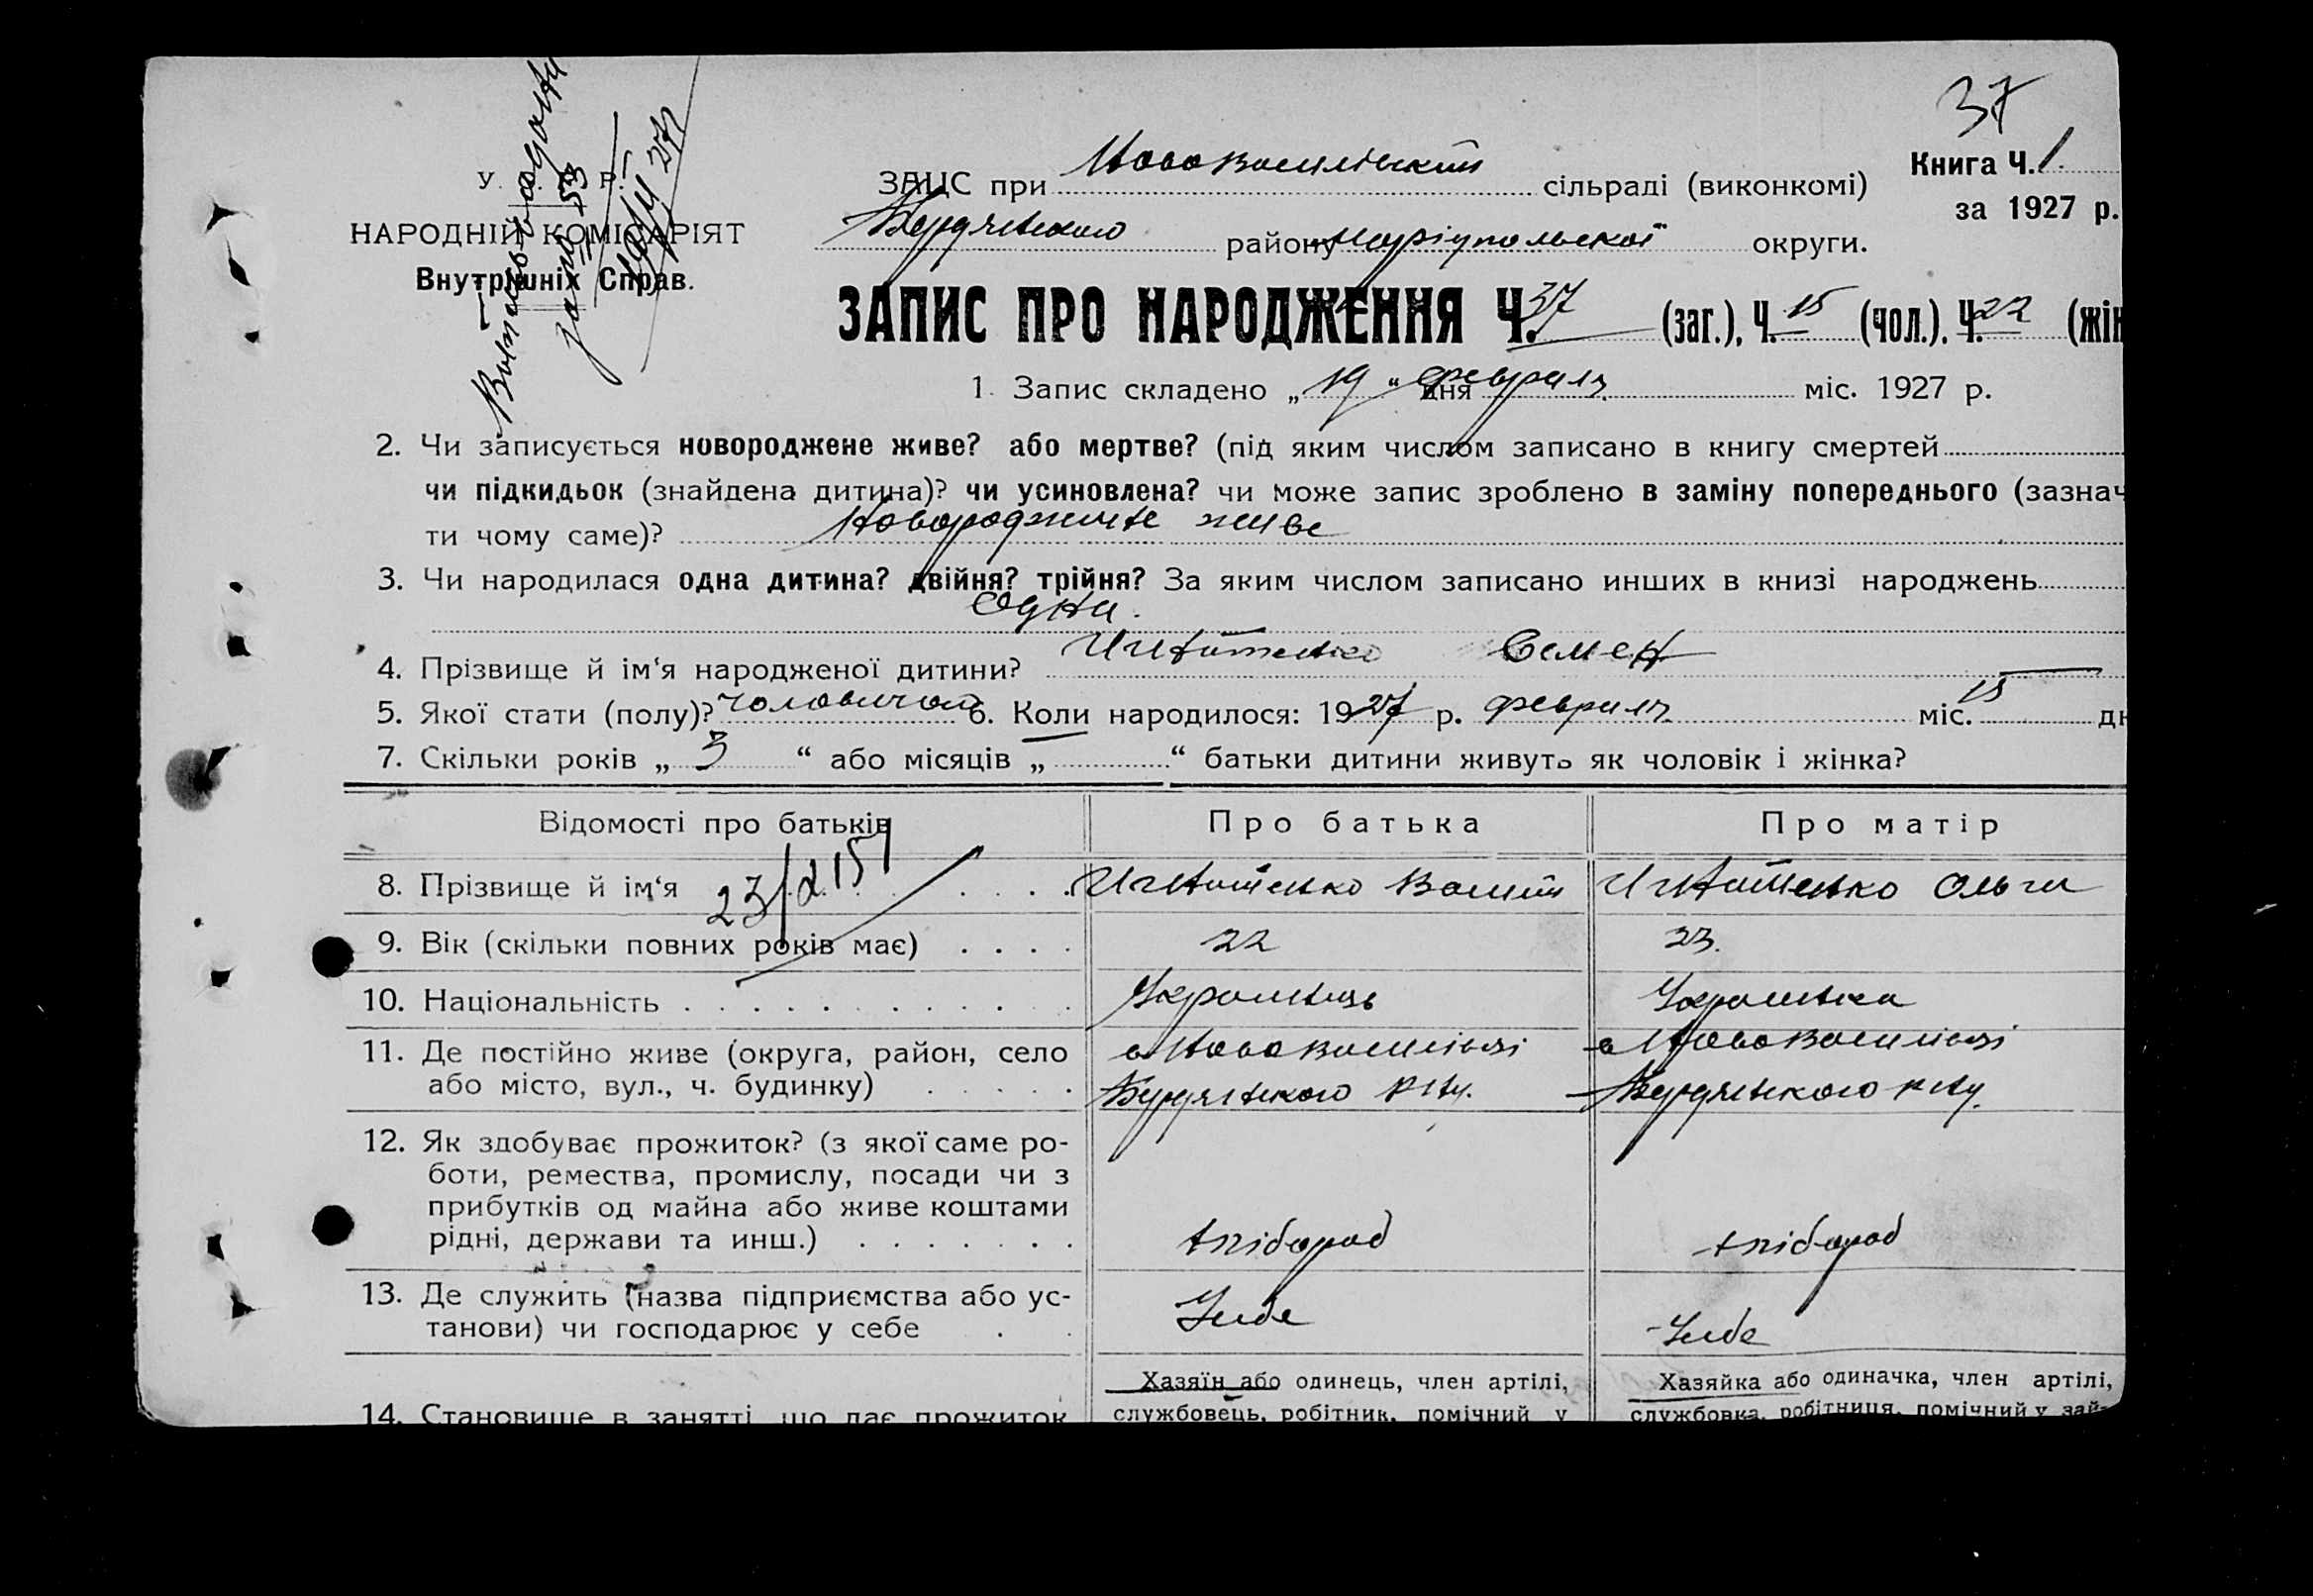 37
Книга Ч. 1.
за 1927 р.
У. Р.
НАРОДНІЙ КОМІСАРІЯТ
Внутрішніх Справ.
ЗАЦС при Нововасилівський сільраді (виконкомі)
Бердянського району Маріупольської округи.
ЗАПИС ПРО НАРОДЖЕННЯ Ч. 37 (заг.), Ч. 15 (чол.). Ч. 22 (жін
1. Запис складено „ 19 “ дня февраля міс. 1927 р.
2. Чи записується новороджене живе? або мертве? (під яким числом записано в книгу смертей
чи підкидьок (знайдена дитина)? чи усиновлена? чи може запис зроблено в заміну попереднього (зазнач
ти чому саме)? Новороджине живе
3. Чи народилася одна дитина? двійня? трійня? За яким числом записано инших в книзі народжень
Одна.
4. Прізвище й ім‘я народженої дитини? Игнатенко Семен
5. Якої стати (полу)? чоловичой 6. Коли народилося: 1927 р. февраля міс. 15 дн
7. Скільки років „ 3 “ або місяців „ “ батьки дитини живуть як чоловік і жінка?
Відомості про батьків Про батька Про матір
8. Прізвище й ім‘я Игнатенко Василь Игнатенко Ольга
9. Вік (скільки повних років має) 22 23.
10. Національність Украинець Украинка
11. Де постійно живе (округа, район, село
або місто, вул., ч. будинку)
с Нововасилівці
Бердянського р-ну.
с Нововасилівці
Бердянського р-ну.
12. Як здобуває прожиток? (з якої саме ро-
боти, ремества, промислу, посади чи з
прибутків од майна або живе коштами
рідні, держави та инш.) хлібороб хлібороб
13. Де служить (назва підприємства або ус-
танови) чи господарює у себе Усибе Усибе
14. Становище в занятті, що дає прожиток
Хазяїн або одинець, член артілі,
службовець, робітник, помічний у
Хазяйка або одиначка, член артілі,
службовка, робітниця, помічний у зай-